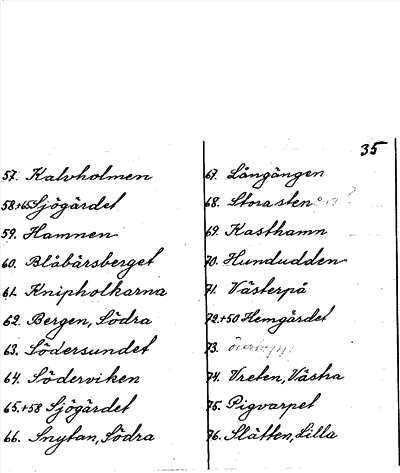 35
57. Kalvholmen
58.+65 Sjögärdet
59. Hamnen
60. Blåbärsberget
61. Knipholkarna
62. Bergen, Södra
63. Södersundet
64. Söderviken
65.+58 Sjögärdet
66. Snytan, Södra
67. Långängen
68. Storasten
69. Kasthamn
70. Hundudden
71. Västerpå
72.+50 Hemgärdet
73.
74. Vreten, Västra
75. Pigvarpet
76. Slätten, Lilla